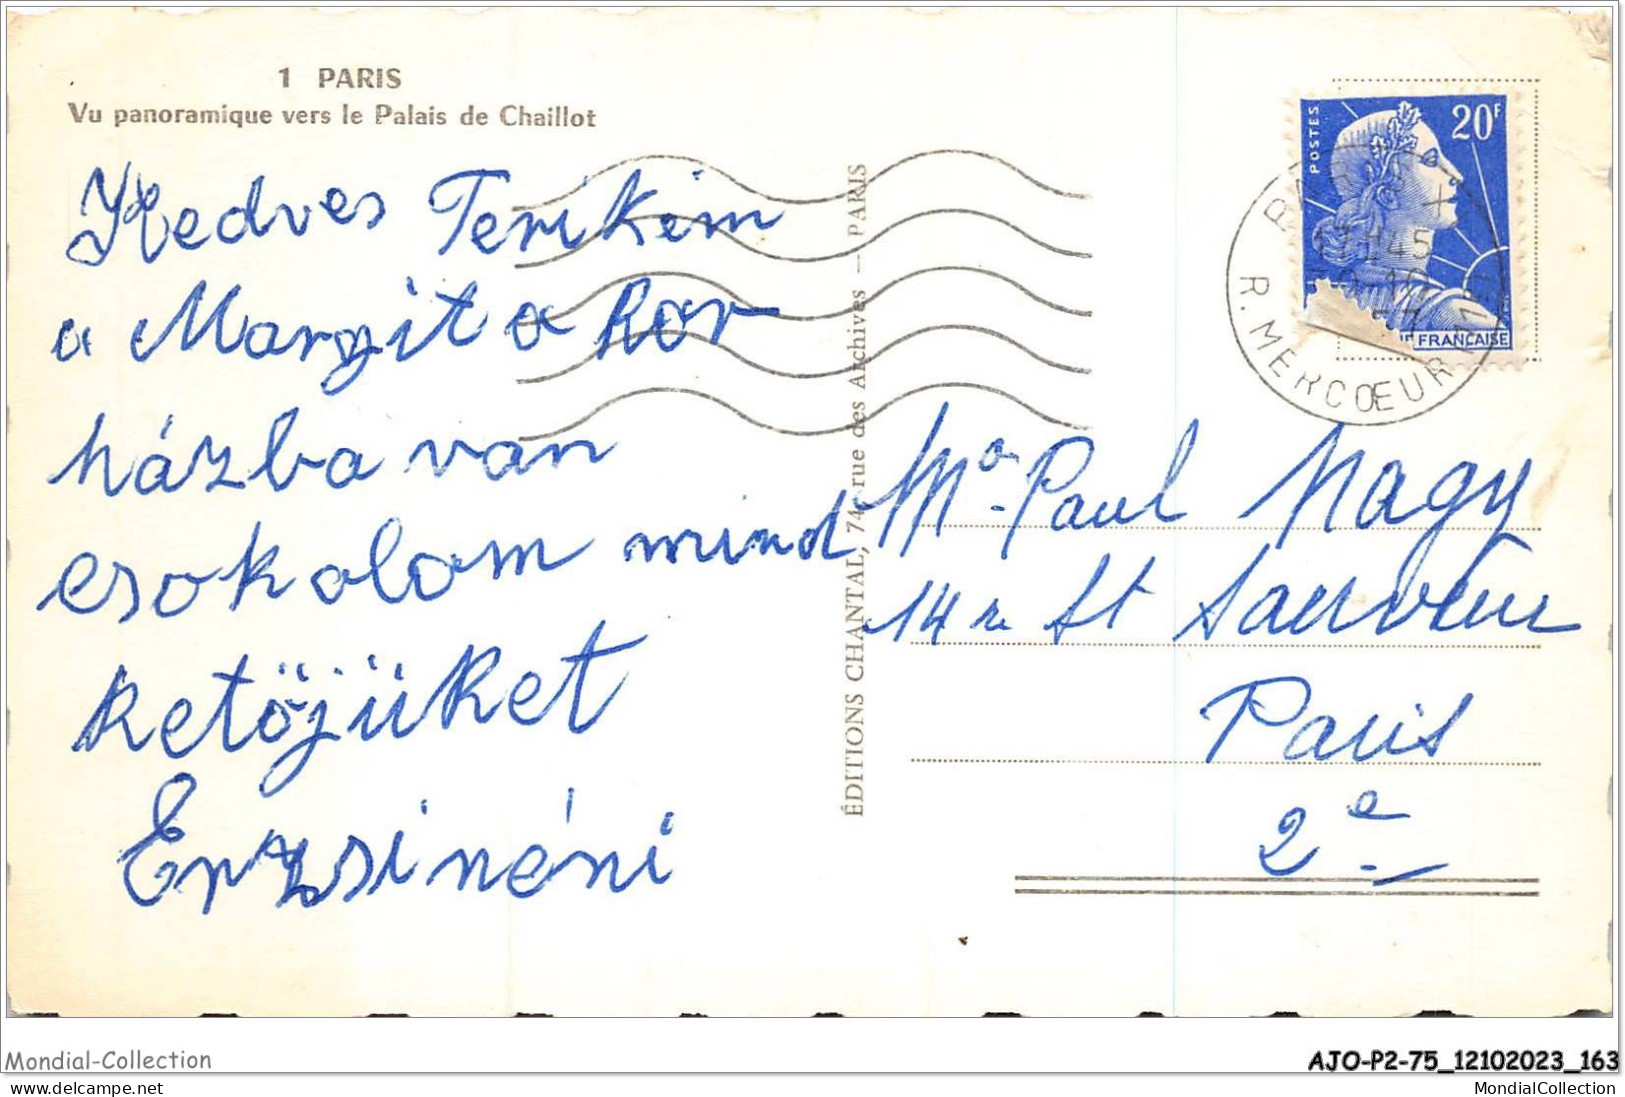 1 PARIS
Vu panoramique vers le Palais de Chaillot
Kedves Terikém
a Margit a kor
házba van
csokolom mind
ketöjüket
Erzsinéni
ÉDITIONS CHANTAL, 74, rue des Archives — PARIS
POSTES
20F
FRANÇAISE
PARIS XI
17H45
R. MERCŒUR
Me Paul Nagy
14 r St Sauveur
Paris
2e
Mondial-Collection
AJO-P2-75_12102023_163
MondialCollection